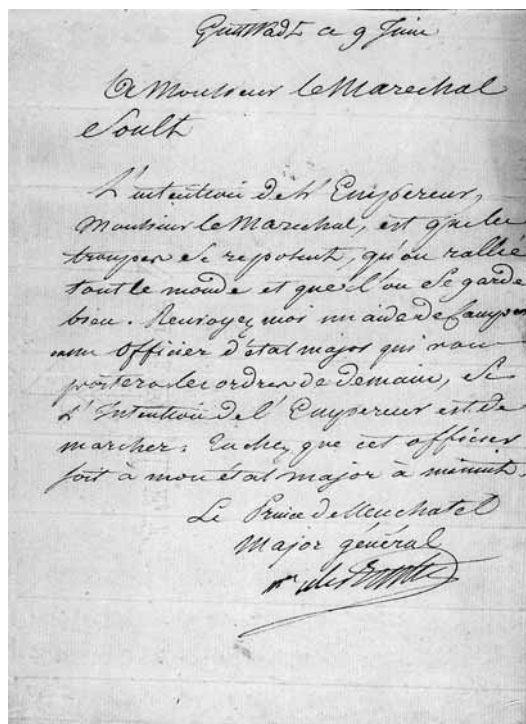 Guttstadt ce 9 Juin
A Monsieur le Marechal
Soult
L'intention de L'Empereur,
Monsieur le Marechal, est que les
troupes se reposent, qu'on rallie
tout le monde et que l'on se garde
bien. Renvoyez moi un aide de Camp ou
un officier d'état major qui vous
portera les ordres de demain, Si
L'Intention de L'Empereur est de
marcher. Tachez que cet officier
soit à mon état major à minuit.
Le Prince de Neuchatel
Major général